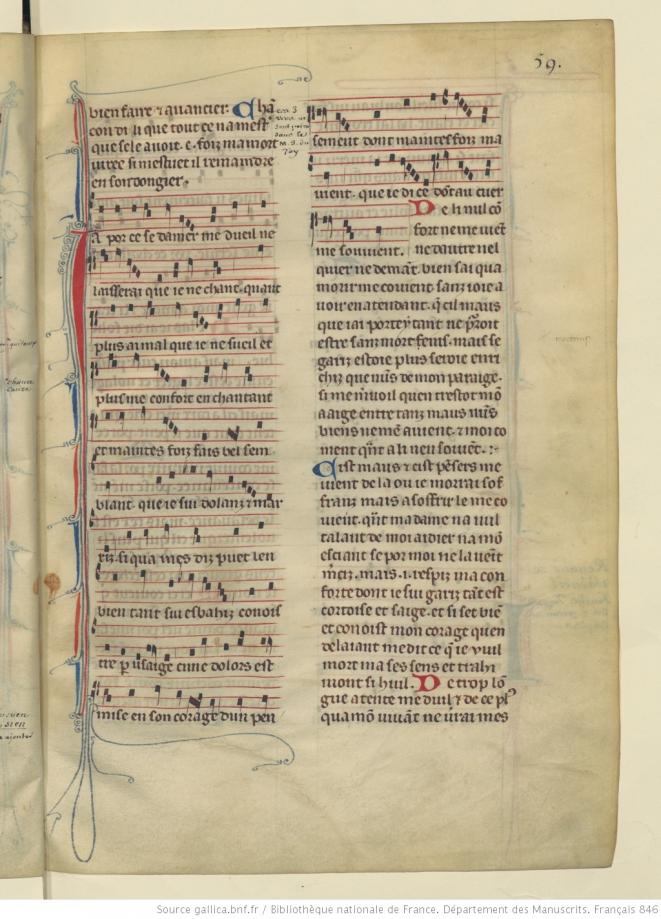 59.
bien faire ⁊ auancier. Chã
con di li que tout ce na mest
que sele auoit .c. foiz ma mort
iuree si mestuet il remaindre
en son dongier.
A por ce se damer me dueil ne
laisserai que ie ne chant. quant
plus ai mal que ie ne sueil et
plus me confort en chantant
et maintes foiz fais bel sem
blant. que ie sui dolanz ⁊ mar
riz. si qua mes diz puet len
bien tant sui esbahiz conois
tre pͬ usaige cune dolors est
mise en son corage dun pen
sement dont maintes foiz ma
uient. que ie di ce dõt au cuer
me souuient.
De li nul cõ
fort ne me uiẽt
ne dautre nel
quier ne demãt. bien sai qua
morir me couient sanz ioie a
uoir en atendant. q̃ cil maus
que iai porte ⁊ tant ne p̃roit
estre sanz mort fenis. mais se
gariz estoie plus seroie enri
chiz que nus de mon paraige.
si me muoil quen trestot mõ
aaige entre tanz maus nus
biens ne mẽ auient. ⁊ moi co
ment q̃nt a li neu souiẽt.
Cist maus ⁊ cist pẽsers me
uient de la ou ie morrai sof
franz mais a soffrir le me co
uient. q̃nt ma dame na uul
talant de moi aidier na mõ
esciant se por moi ne la uẽit
m̃ciz. mais .i. respiz ma con
forte dont ie sui gariz tãt est
cortoise et saige. et si set biẽ
et conoist mon corage quen
delaiant me dit ce q̃ ie vuil
mort ma ses sens et trahi
mont si huil. De trop lõ
gue atente me duil ⁊ de ce plꝰ
qua mõ uiuant ne uirai mes
Source gallica.bnf.fr / Bibliothèque nationale de France. Département des Manuscrits. Français 846